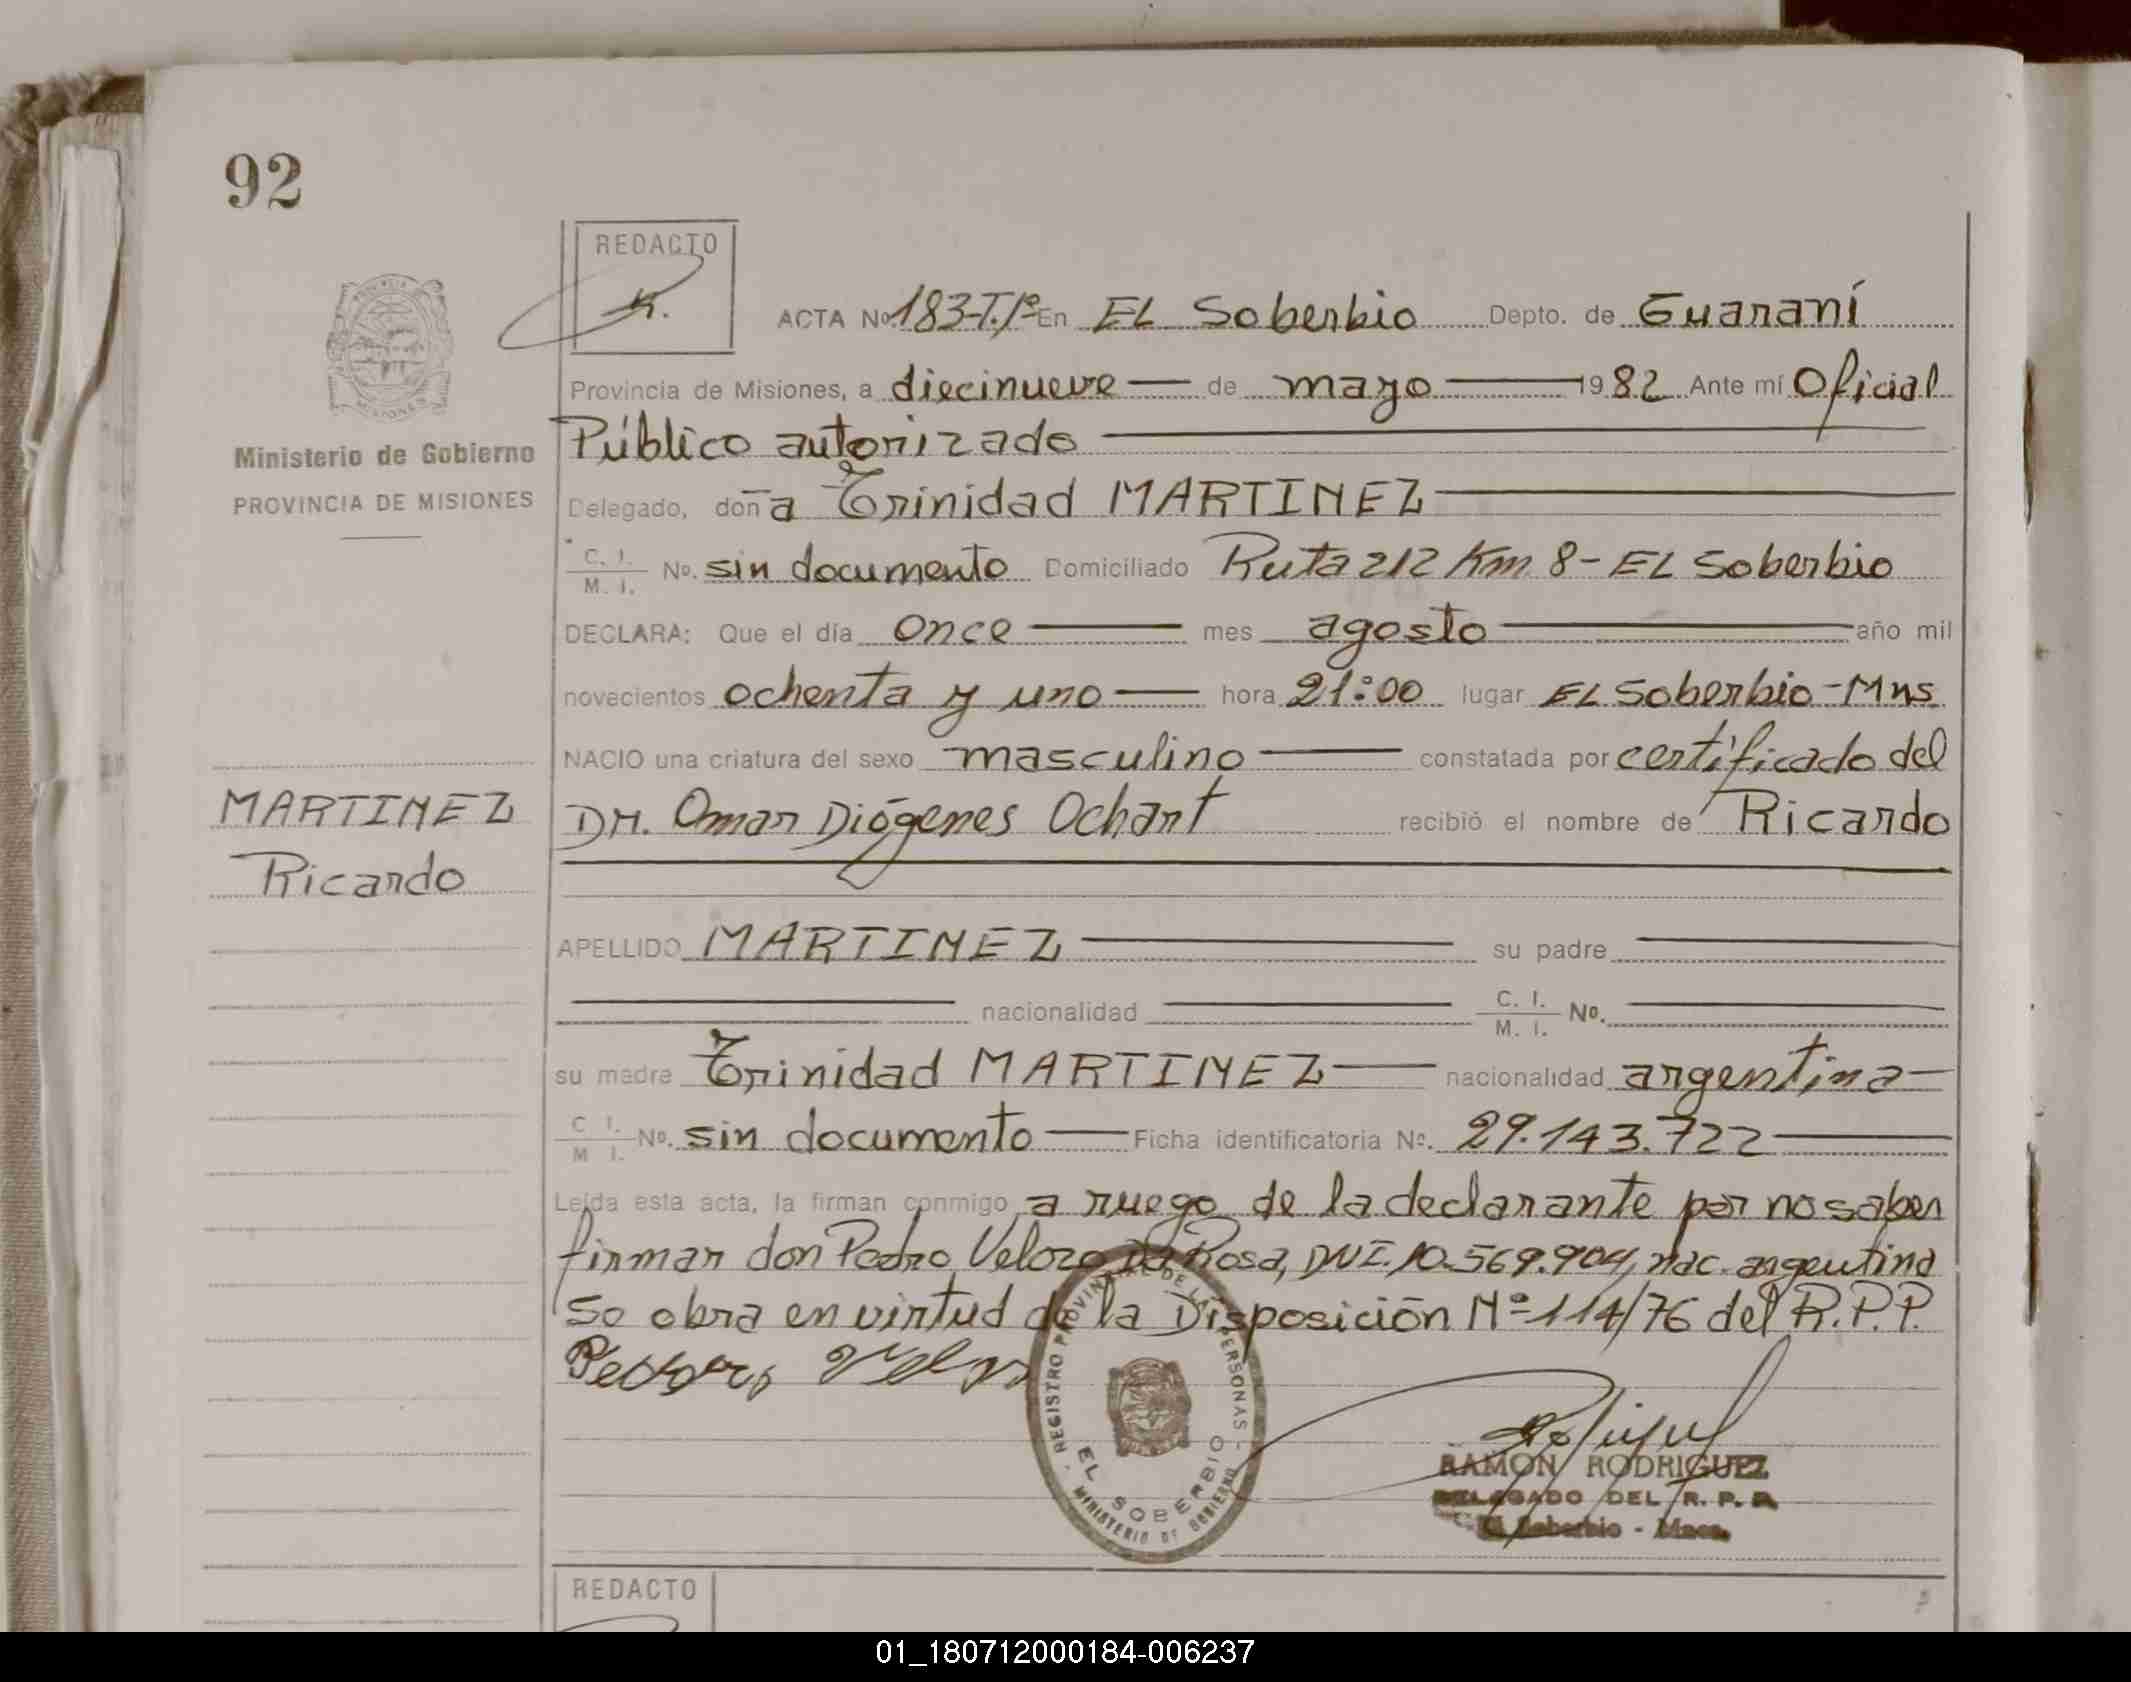 92
REDACTO
ACTA No. 183-T.1º En EL Soberbio Depto. de Guaraní
Provincia de Misiones, a diecinueve de mayo 1982 Ante mí Oficial
Público autorizado
Ministerio de Gobierno
PROVINCIA DE MISIONES
Delegado, doña Trinidad MARTINEZ
C. I. M. I. No. sin documento Domiciliado Ruta 212 Km 8 - EL Soberbio
DECLARA: Que el día once mes agosto año mil
novecientos ochenta y uno hora 21:00 lugar EL Soberbio - Mns.
NACIO una criatura del sexo masculino constatada por certificado del
DM. Omar Diógenes Ochart recibió el nombre de Ricardo
MARTINEZ
Ricardo
APELLIDO MARTINEZ su padre
nacionalidad C. I. M. I. No.
su madre Trinidad MARTINEZ nacionalidad argentina
C. I. M. I. No. sin documento Ficha identificatoria Nº. 29.143.722
Leída esta acta, la firman conmigo a ruego de la declarante por no saber
firmar don Pedro Velozo Da Rosa, DNI. 10.569.904, nac. argentina
Se obra en virtud de la Disposición Nº 114/76 del R.P.P.
REGISTRO PROVINCIAL DE LAS PERSONAS -
EL SOBERBIO
MINISTERIO DE GOBIERNO
RAMON RODRIGUEZ
DELEGADO DEL R. P. P.
El Soberbio - Mnes.
REDACTO
01_180712000184-006237